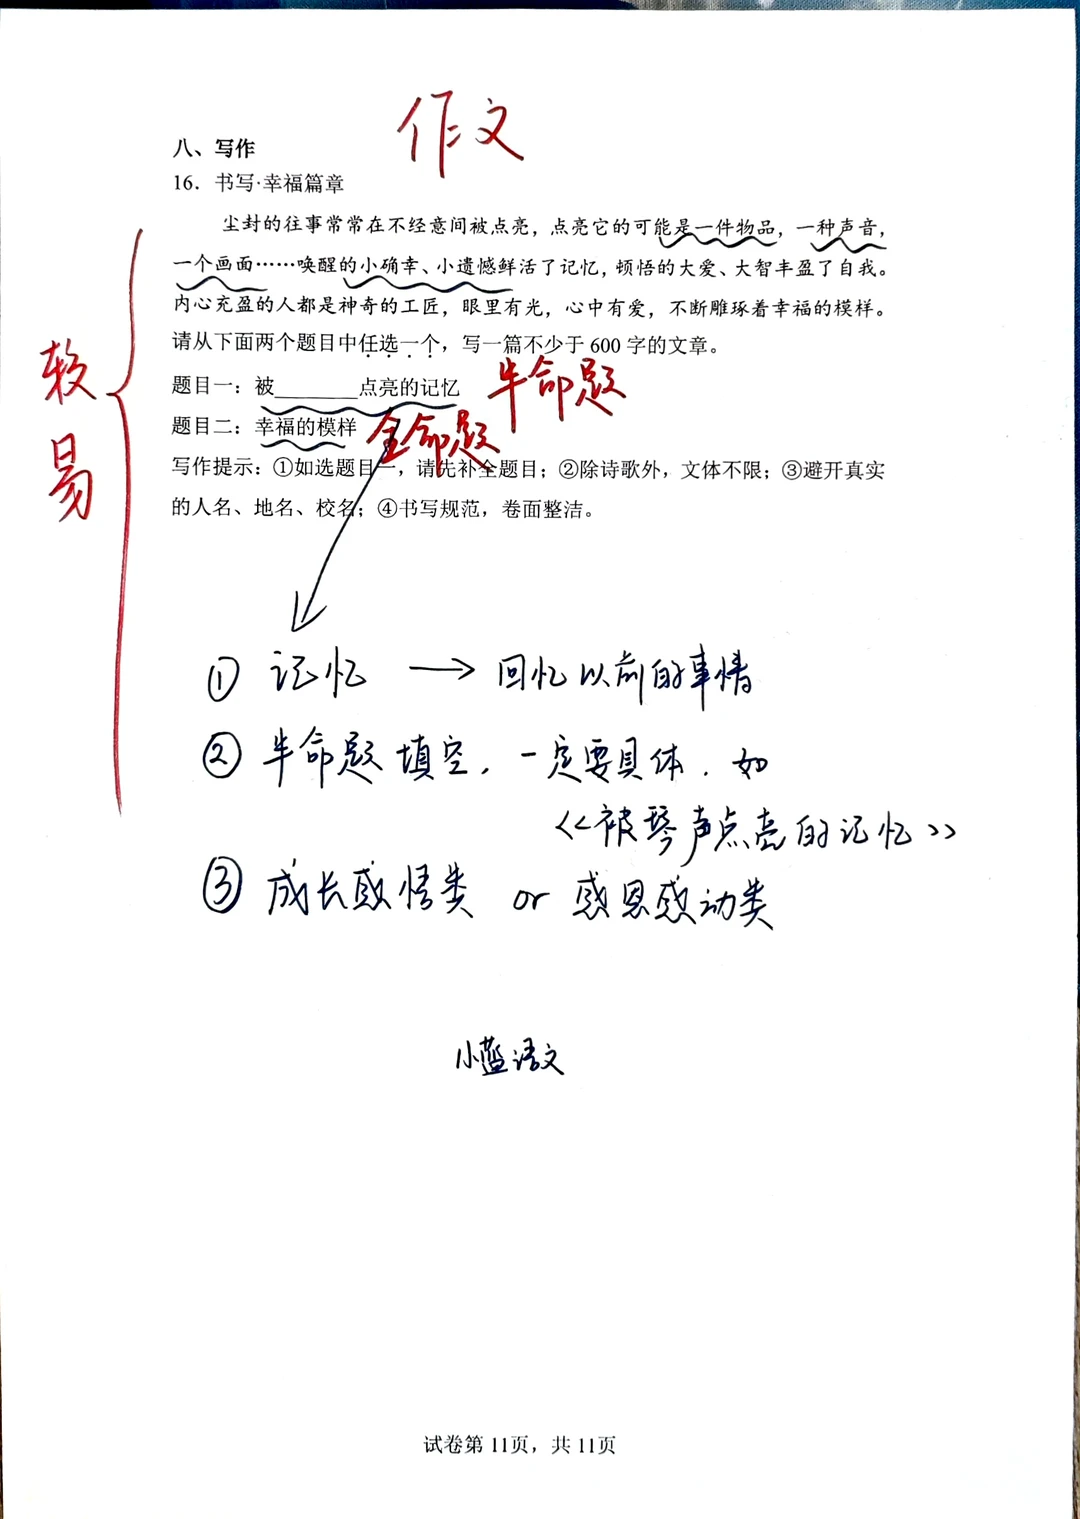 作文
八、写作
16. 书写·幸福篇章
尘封的往事常常在不经意间被点亮，点亮它的可能是一件物品，一种声音，
一个画面……唤醒的小确幸、小遗憾鲜活了记忆，顿悟的大爱、大智丰盈了自我。
内心充盈的人都是神奇的工匠，眼里有光，心中有爱，不断雕琢着幸福的模样。
请从下面两个题目中任选一个，写一篇不少于 600 字的文章。
较易
题目一：被________点亮的记忆 半命题
题目二：幸福的模样 全命题
写作提示：①如选题目一，请先补全题目；②除诗歌外，文体不限；③避开真实
的人名、地名、校名；④书写规范，卷面整洁。
① 记忆 → 回忆以前的事情
② 半命题填空，一定要具体．如
《被琴声点亮的记忆》
③ 成长感悟类 or 感恩感动类
小蓝语文
试卷第 11页，共 11页